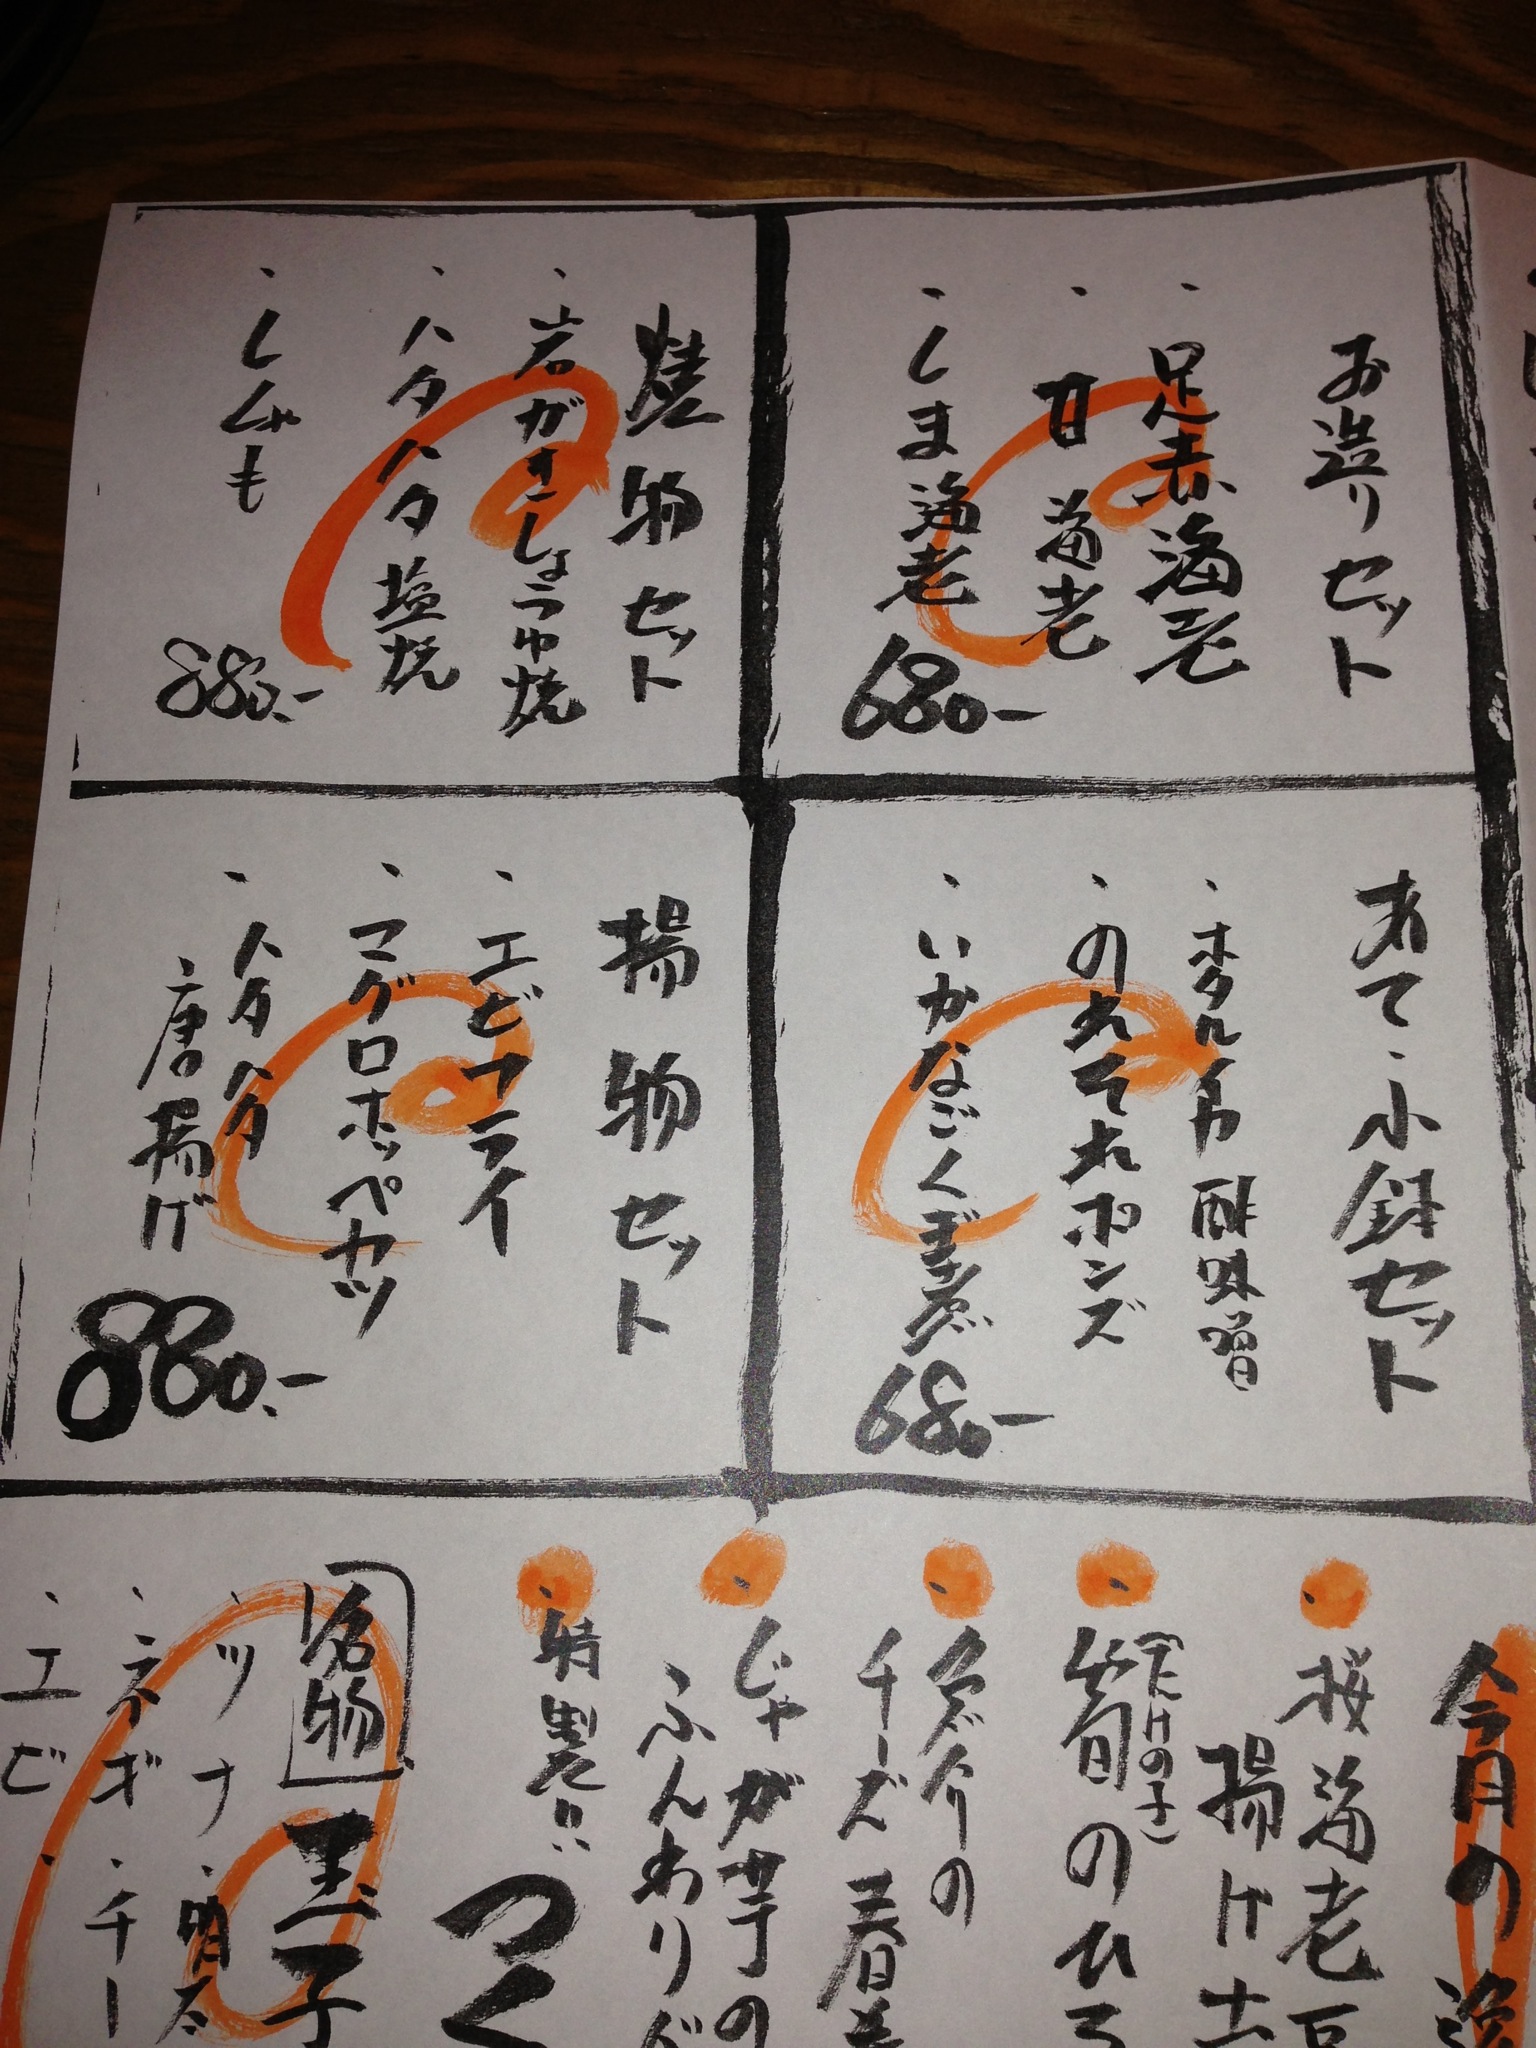 お造りセット
、足赤海老
、甘海老
、しま海老
680-
焼物セット
、岩がきしょうゆ焼
、ハタハタ塩焼
、ししゃも
880.-
あて・小鉢セット
、ホタルイカ酢味噌
、のれそれポンズ
、いかなごくぎ煮
680-
揚物セット
、エビフライ
、マグロホッペカツ
、ハタハタ
唐揚げ
880.-
今月の逸
、桜海老豆
揚げ士
、筍のひろ
(たけの子)
、タダイの
チーズ春巻
、じゃが芋の
ふんわりど
、特製!!
つく
名物 玉子
、ツナ、明太
、ネギ、チー
、エビ